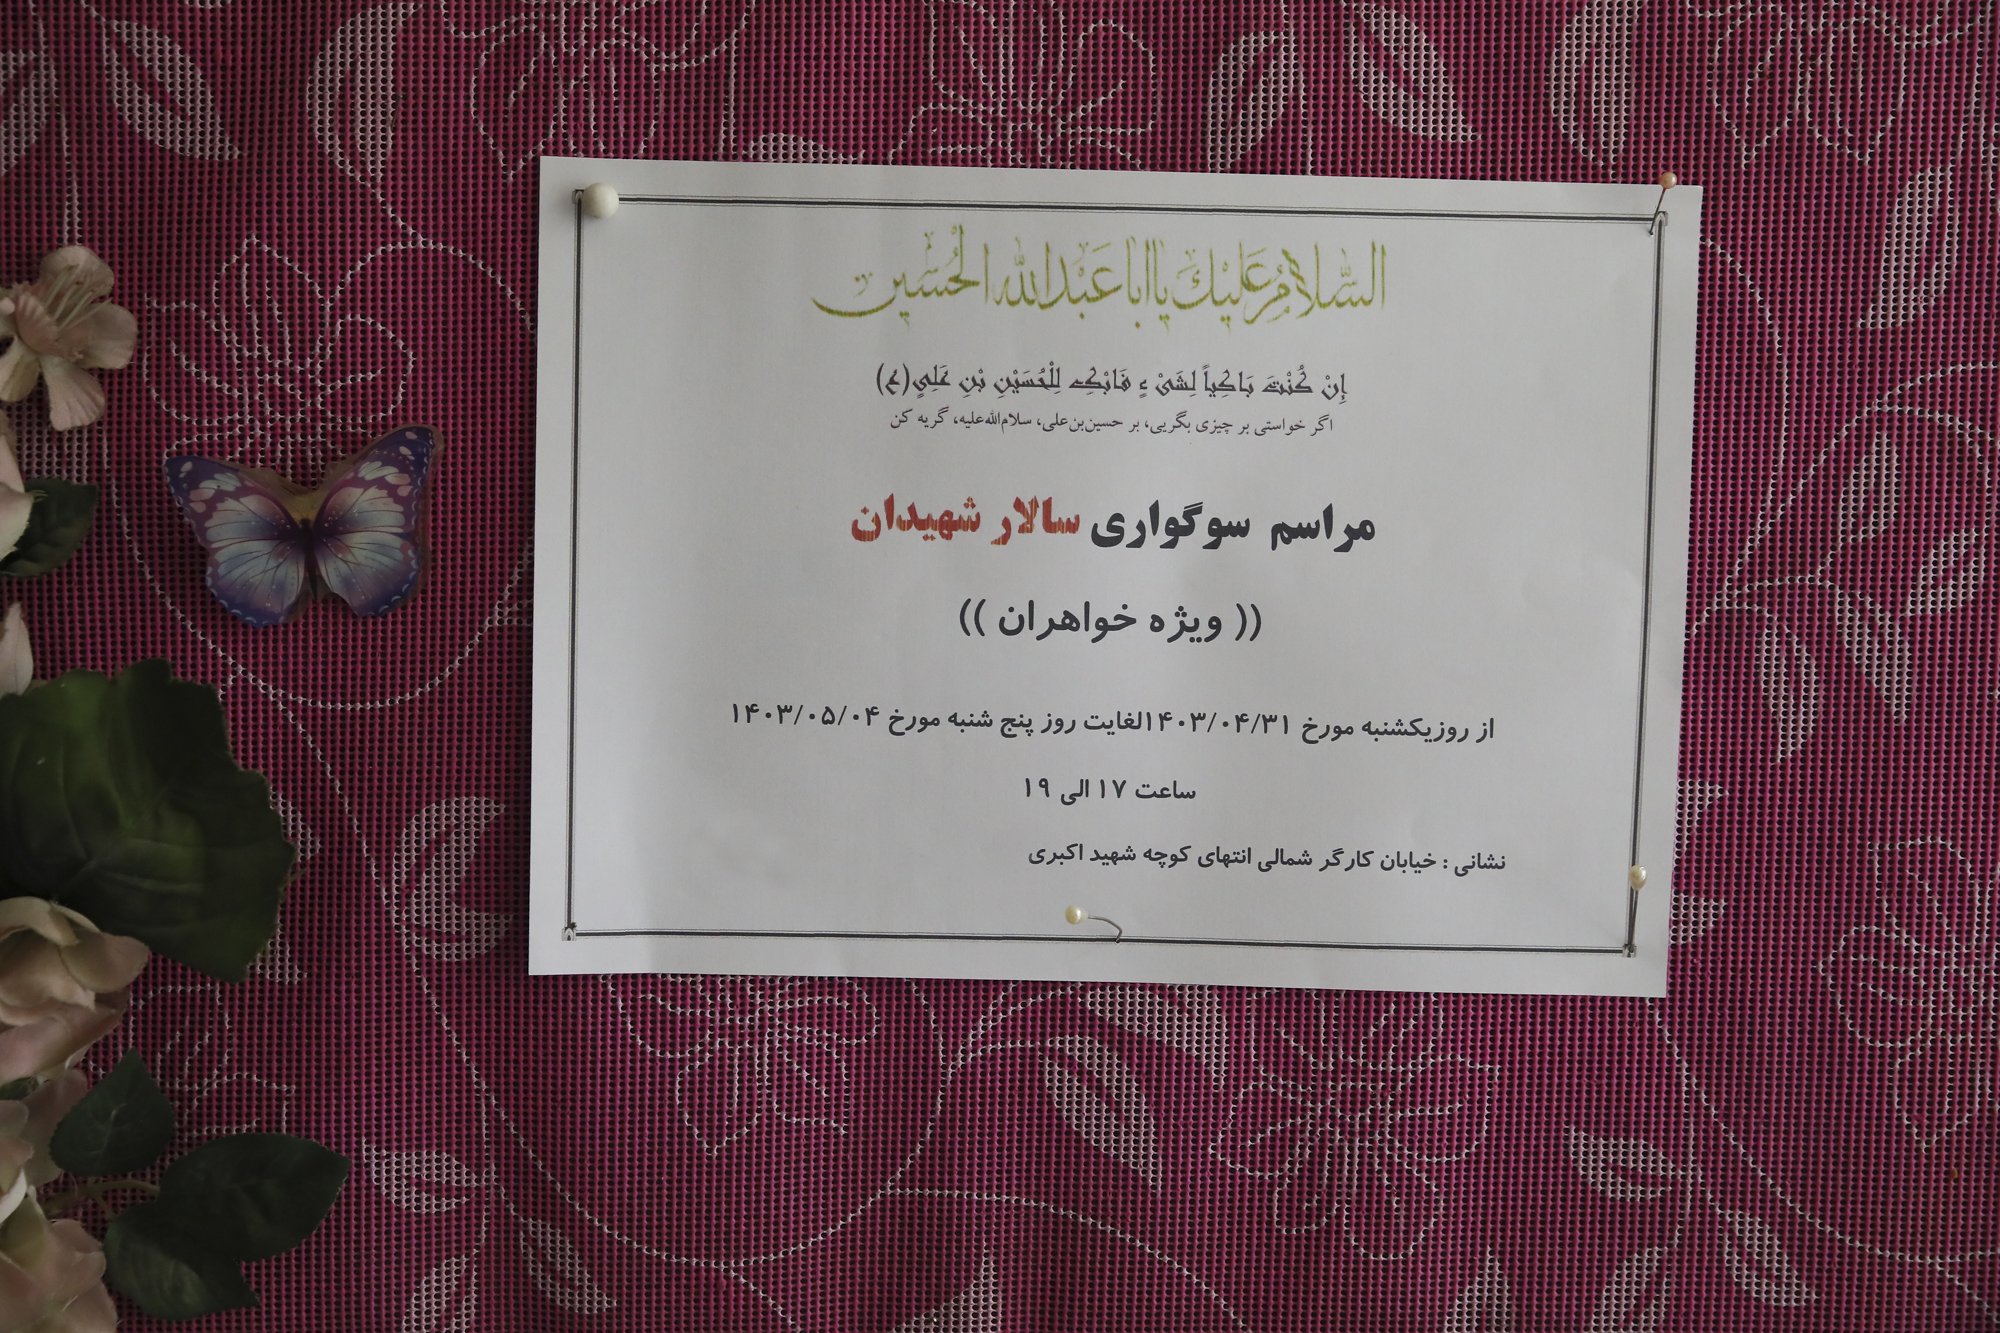 السَّلامُ عَلَيْكَ يا ابا عَبْدالله الحُسَين
إِنْ كُنْتَ بَاكِياً لِشَيْ ءٍ فَابْكِ لِلْحُسَيْنِ بْنِ عَلِيٍ(ع)
اگر خواستی بر چیزی بگریی، بر حسین‌بن‌علی، سلام‌الله‌علیه، گریه کن
مراسم سوگواری سالار شهیدان
(( ویژه خواهران ))
از روزیکشنبه مورخ ۱۴۰۳/۰۴/۳۱لغایت روز پنج شنبه مورخ ۱۴۰۳/۰۵/۰۴
ساعت ۱۷ الی ۱۹
نشانی : خیابان کارگر شمالی انتهای کوچه شهید اکبری